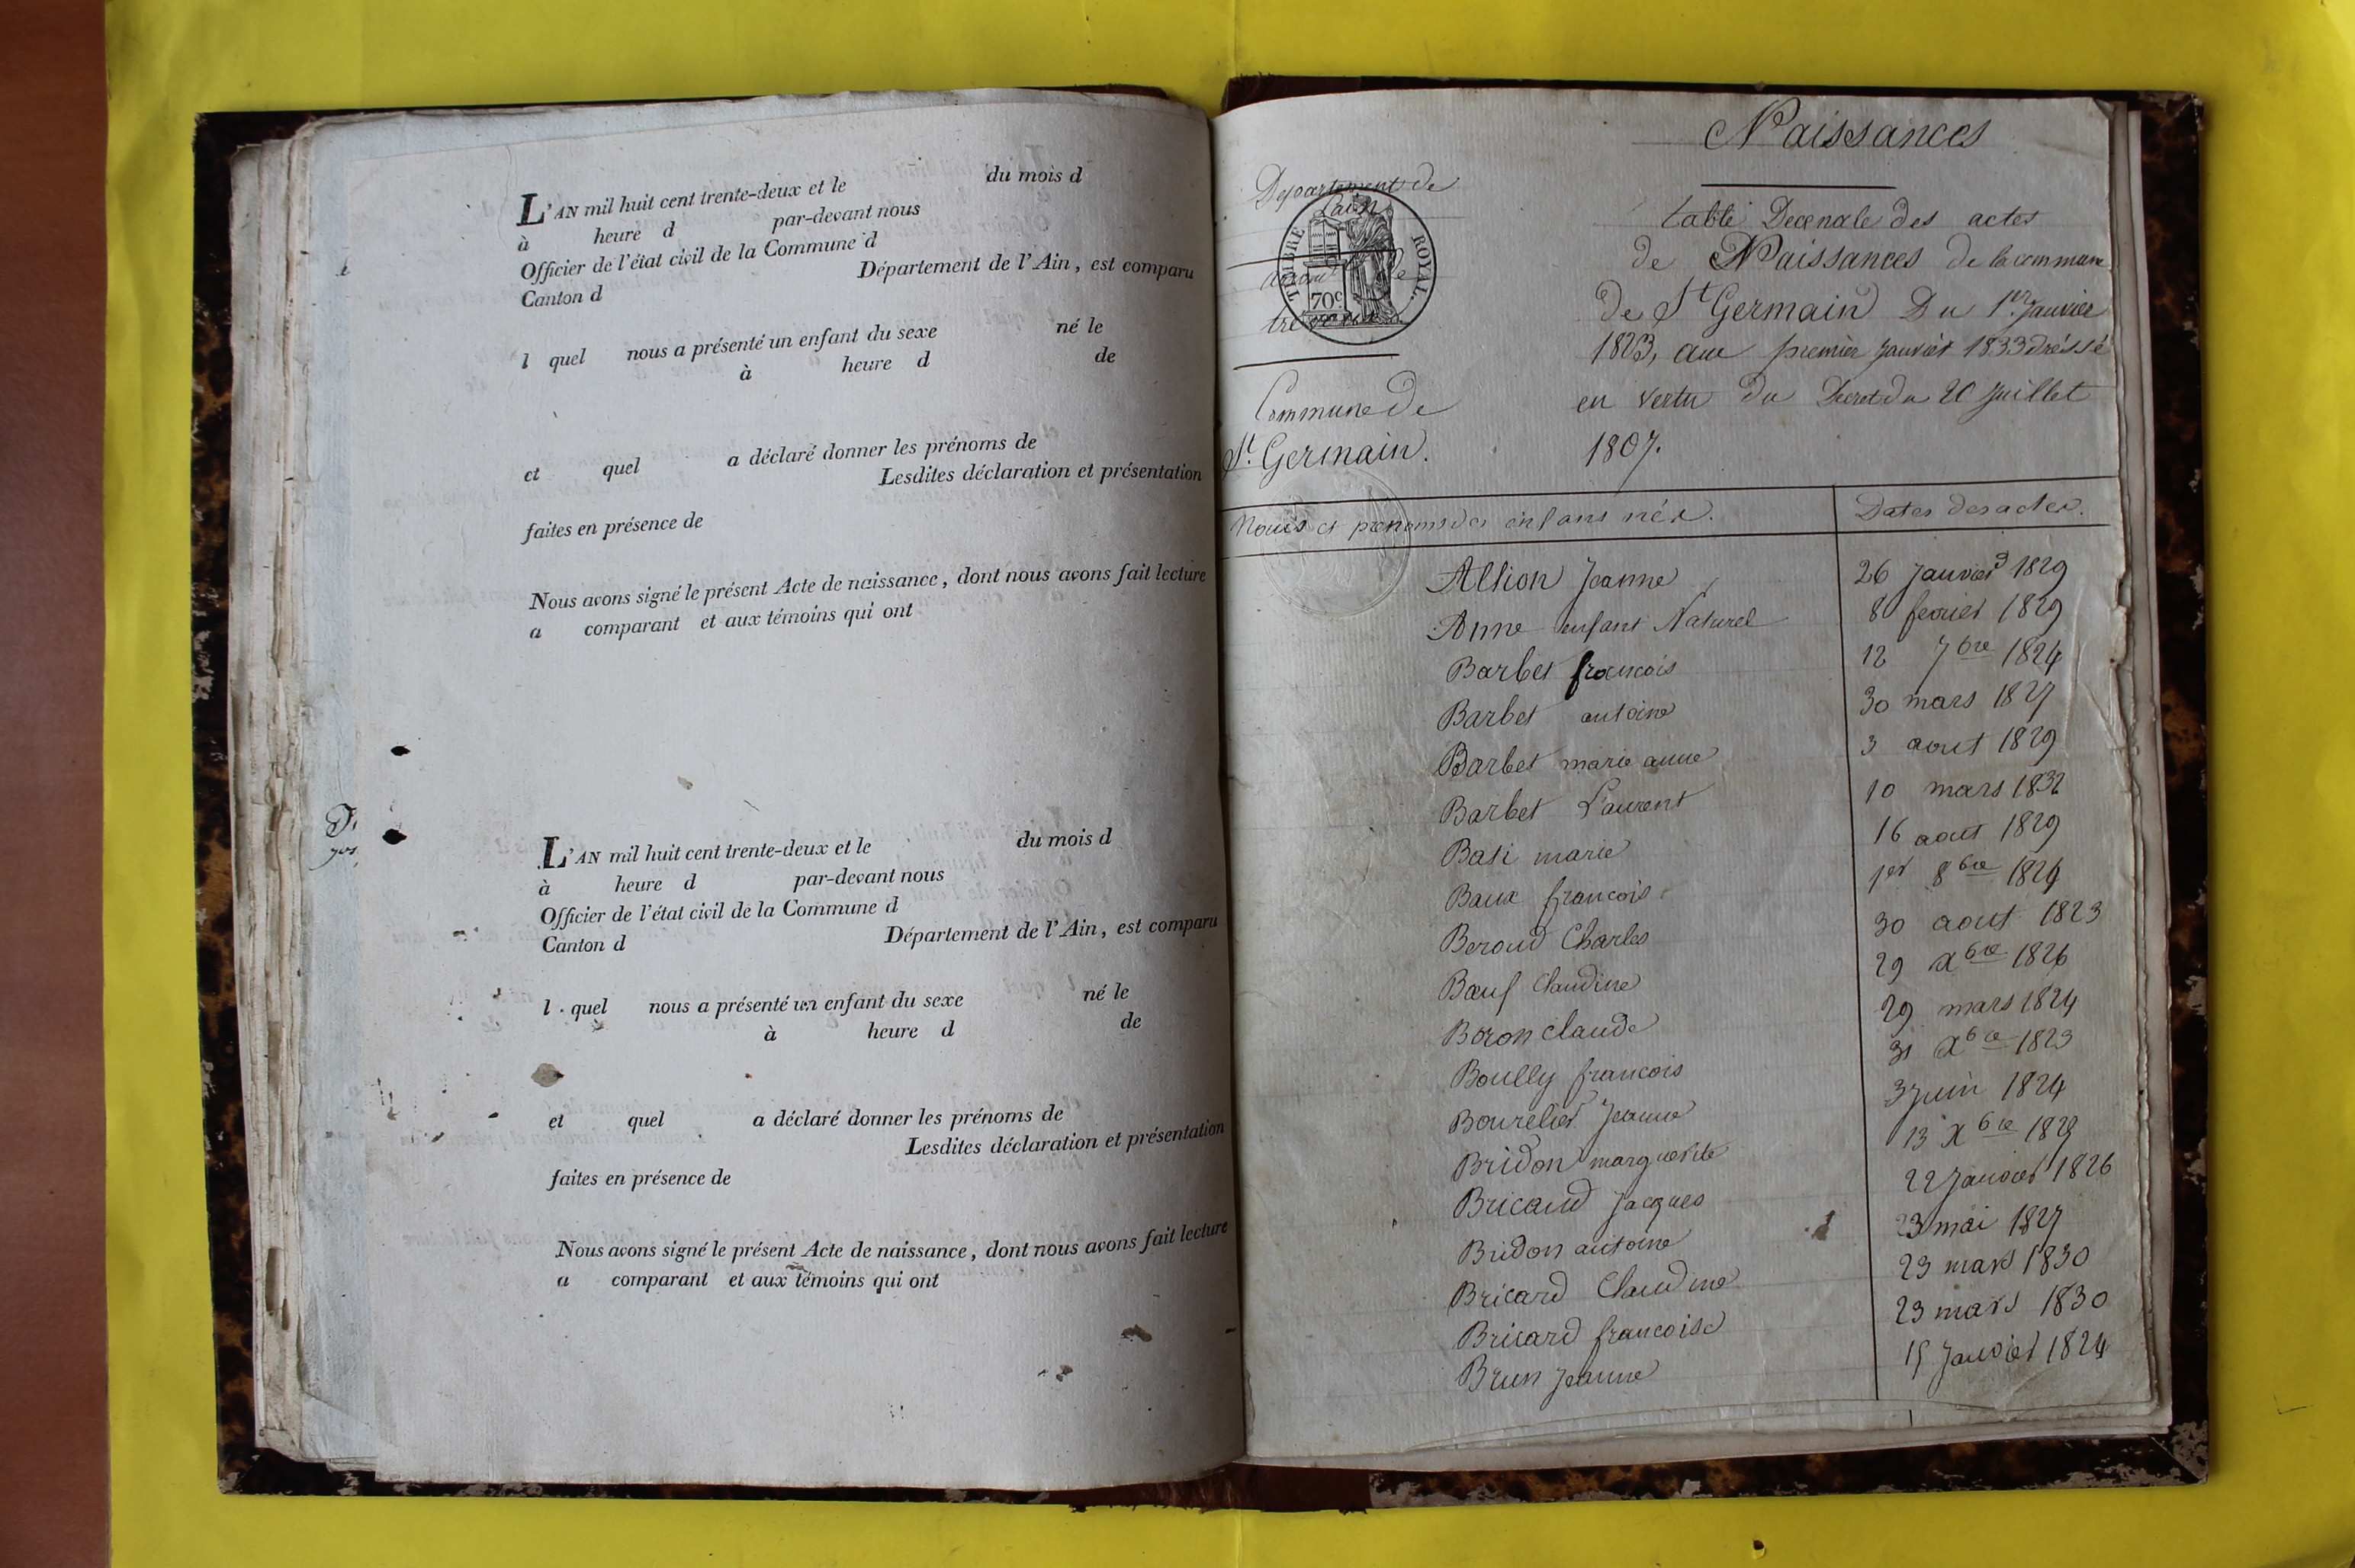 L'AN mil huit cent trente-deux et le du mois d
à heure d par-devant nous
Officier de l'état civil de la Commune d
Canton d Département de l'Ain, est comparu
l quel nous a présenté un enfant du sexe né le
à heure d de
et quel a déclaré donner les prénoms de
Lesdites déclaration et présentation
faites en présence de
Nous avons signé le présent Acte de naissance, dont nous avons fait lecture
a comparant et aux témoins qui ont
L'AN mil huit cent trente-deux et le du mois d
à heure d par-devant nous
Officier de l'état civil de la Commune d
Canton d Département de l'Ain, est comparu
l quel nous a présenté un enfant du sexe né le
à heure d de
et quel a déclaré donner les prénoms de
Lesdites déclaration et présentation
faites en présence de
Nous avons signé le présent Acte de naissance, dont nous avons fait lecture
a comparant et aux témoins qui ont
Naissances
Departement de
L'ain
TIMBRE ROYAL.
70c
Commune de
St. Germain.
table Decenale des actes
de Naissances de la commune
de St Germain Du 1er Janvier
1823, au premier janvier 1833 dréssé
en vertu du Decret du 20 Juillet
1807.
Noms et prenoms des enfans nés. Dates des actes.
Allion Jeanne 26 Janvier 1829
Anne enfant Naturel 8 fevrier 1829
Barbet francois 12 7bre 1824
Barbet antoine 30 mars 1827
Barbet marie anne 3 aout 1829
Barbet Laurent 10 mars 1832
Basi marie 16 aout 1829
Baux francois 1er 8bre 1829
Beroud Charles 30 aout 1823
Bœuf Claudine 29 Xbre 1826
Boron Claude 29 mars 1824
Boully francois 31 Xbre 1823
Bourelier Jeanne 3 Juin 1824
Bridon marguerite 13 Xbre 1829
Bricaud Jacques 22 Janvier 1826
Bridon antoine 23 mai 1827
Bricard Claudine 23 mars 1830
Bricard francoise 23 mars 1830
Brun Jeanne 15 Janvier 1824